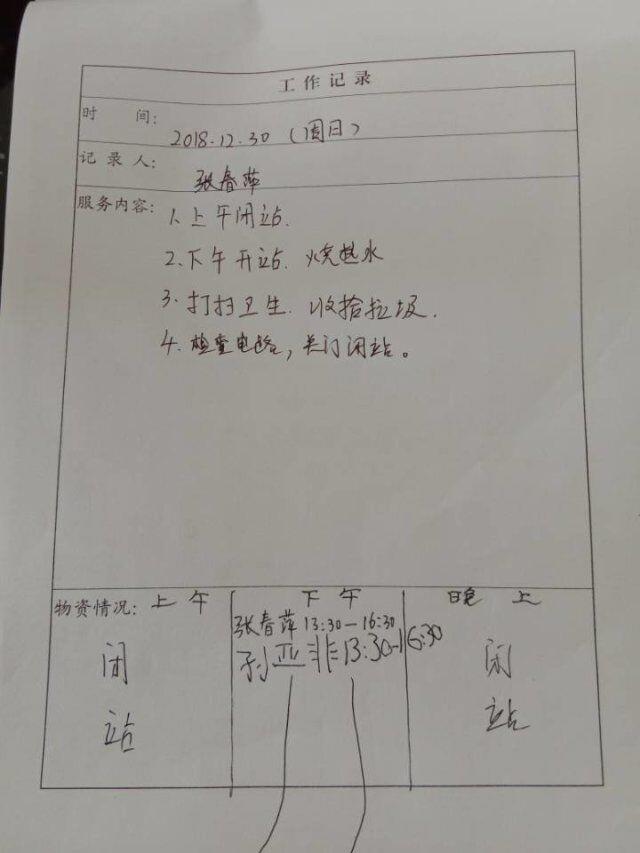 工作记录
时 间：2018.12.30（周日）
记录人：张春萍
服务内容：1.上午闭站.
2.下午开站.烧热水
3.打扫卫生.收拾垃圾.
4.检查电路，关门闭站。
物资情况：上午 下午 晚上
张春萍 13:30-16:30
孙亚非 13:30-16:30
闭站
闭站